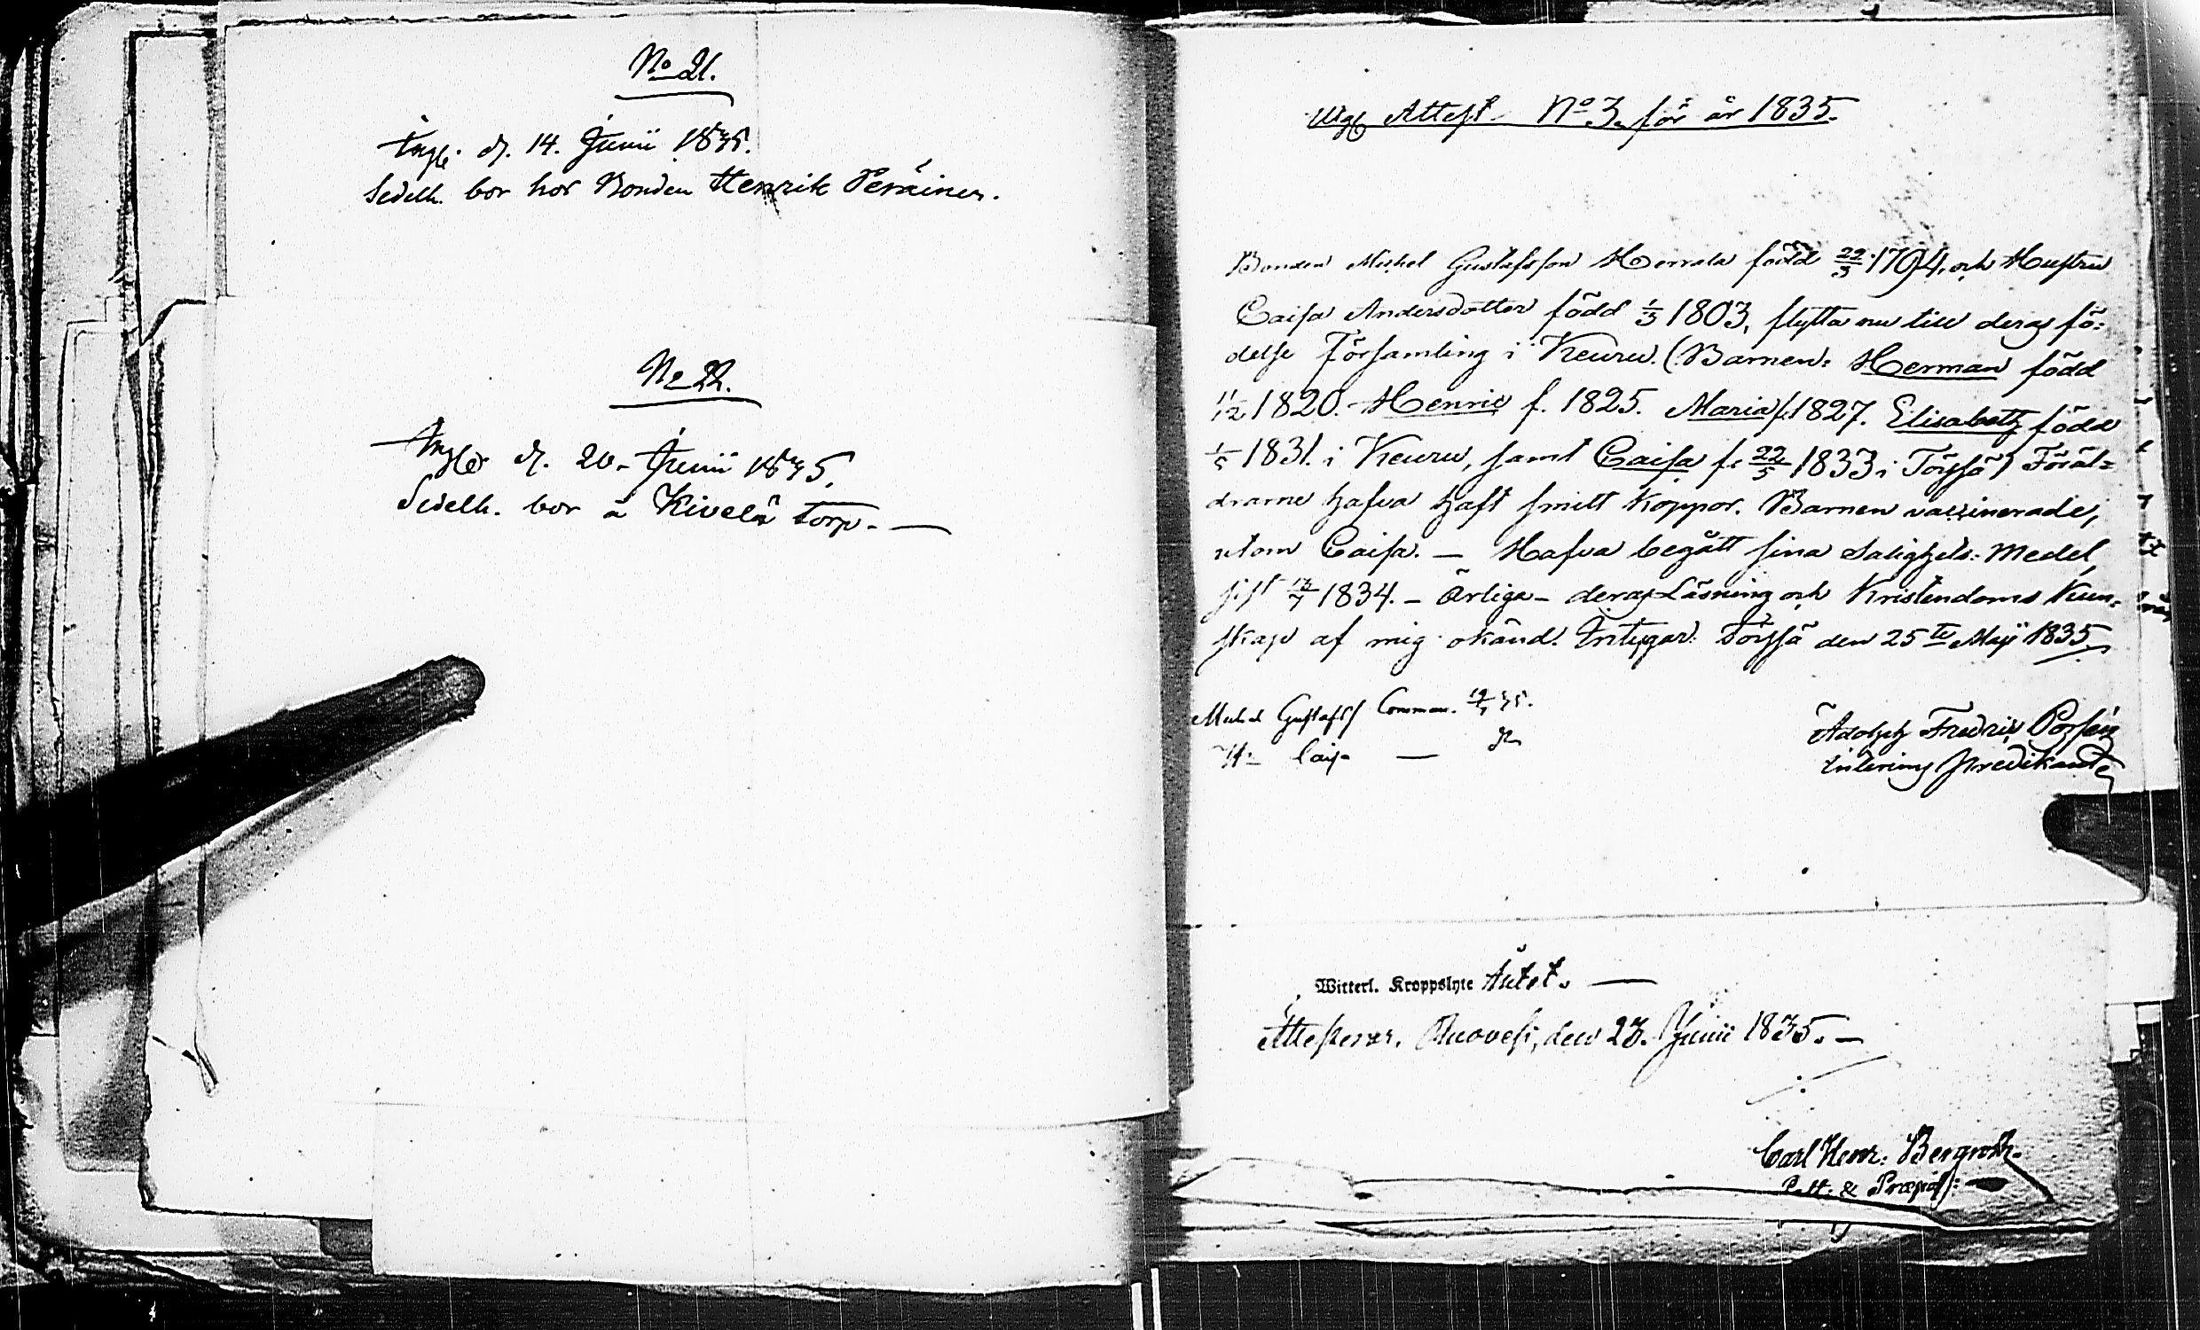 No 21.
Ingf. d. 14. Junii 1835.
Sedelh. bor hos Bonden Henrik Peräinen.
No 22.
d. 20. Junii 1835.
Sedelh. bor å Kivelä torp. —
Attest No 3. för år 1835.
Bonden Michel Gustafsson Herrala född 22/3 1794, och Hustru
Caisa Andersdotter född 1/3 1803, flytta nu till deras fö-
delse Församling i Keuru. (Barnen: Herman född
11/12 1820. Henric f. 1825. Maria f. 1827. Elisabeth född
1/5 1831. i Keuru, samt Caisa f. 22/5 1833 i Töysä) Föräl-
drarne hafva haft smitt koppor. Barnen vaccinerade,
utom Caisa. — Hafva begått sina Salighets-Medel,
sist 1834. – Ärliga – deras Läsning och Kristendoms Kun-
skap af mig okänd. Intygar. Töysä den 25te Maji 1835.
Michel Gustafss. Commun. 35.
H. Caisa — d:o
Adolph Fredric
Interims Predikant
Witterl. Kroppslyte
Attesterar. Ruovesi, den 23. Junii 1835. —
Carl Henr: Bergroth.
P. H. & Præpos: